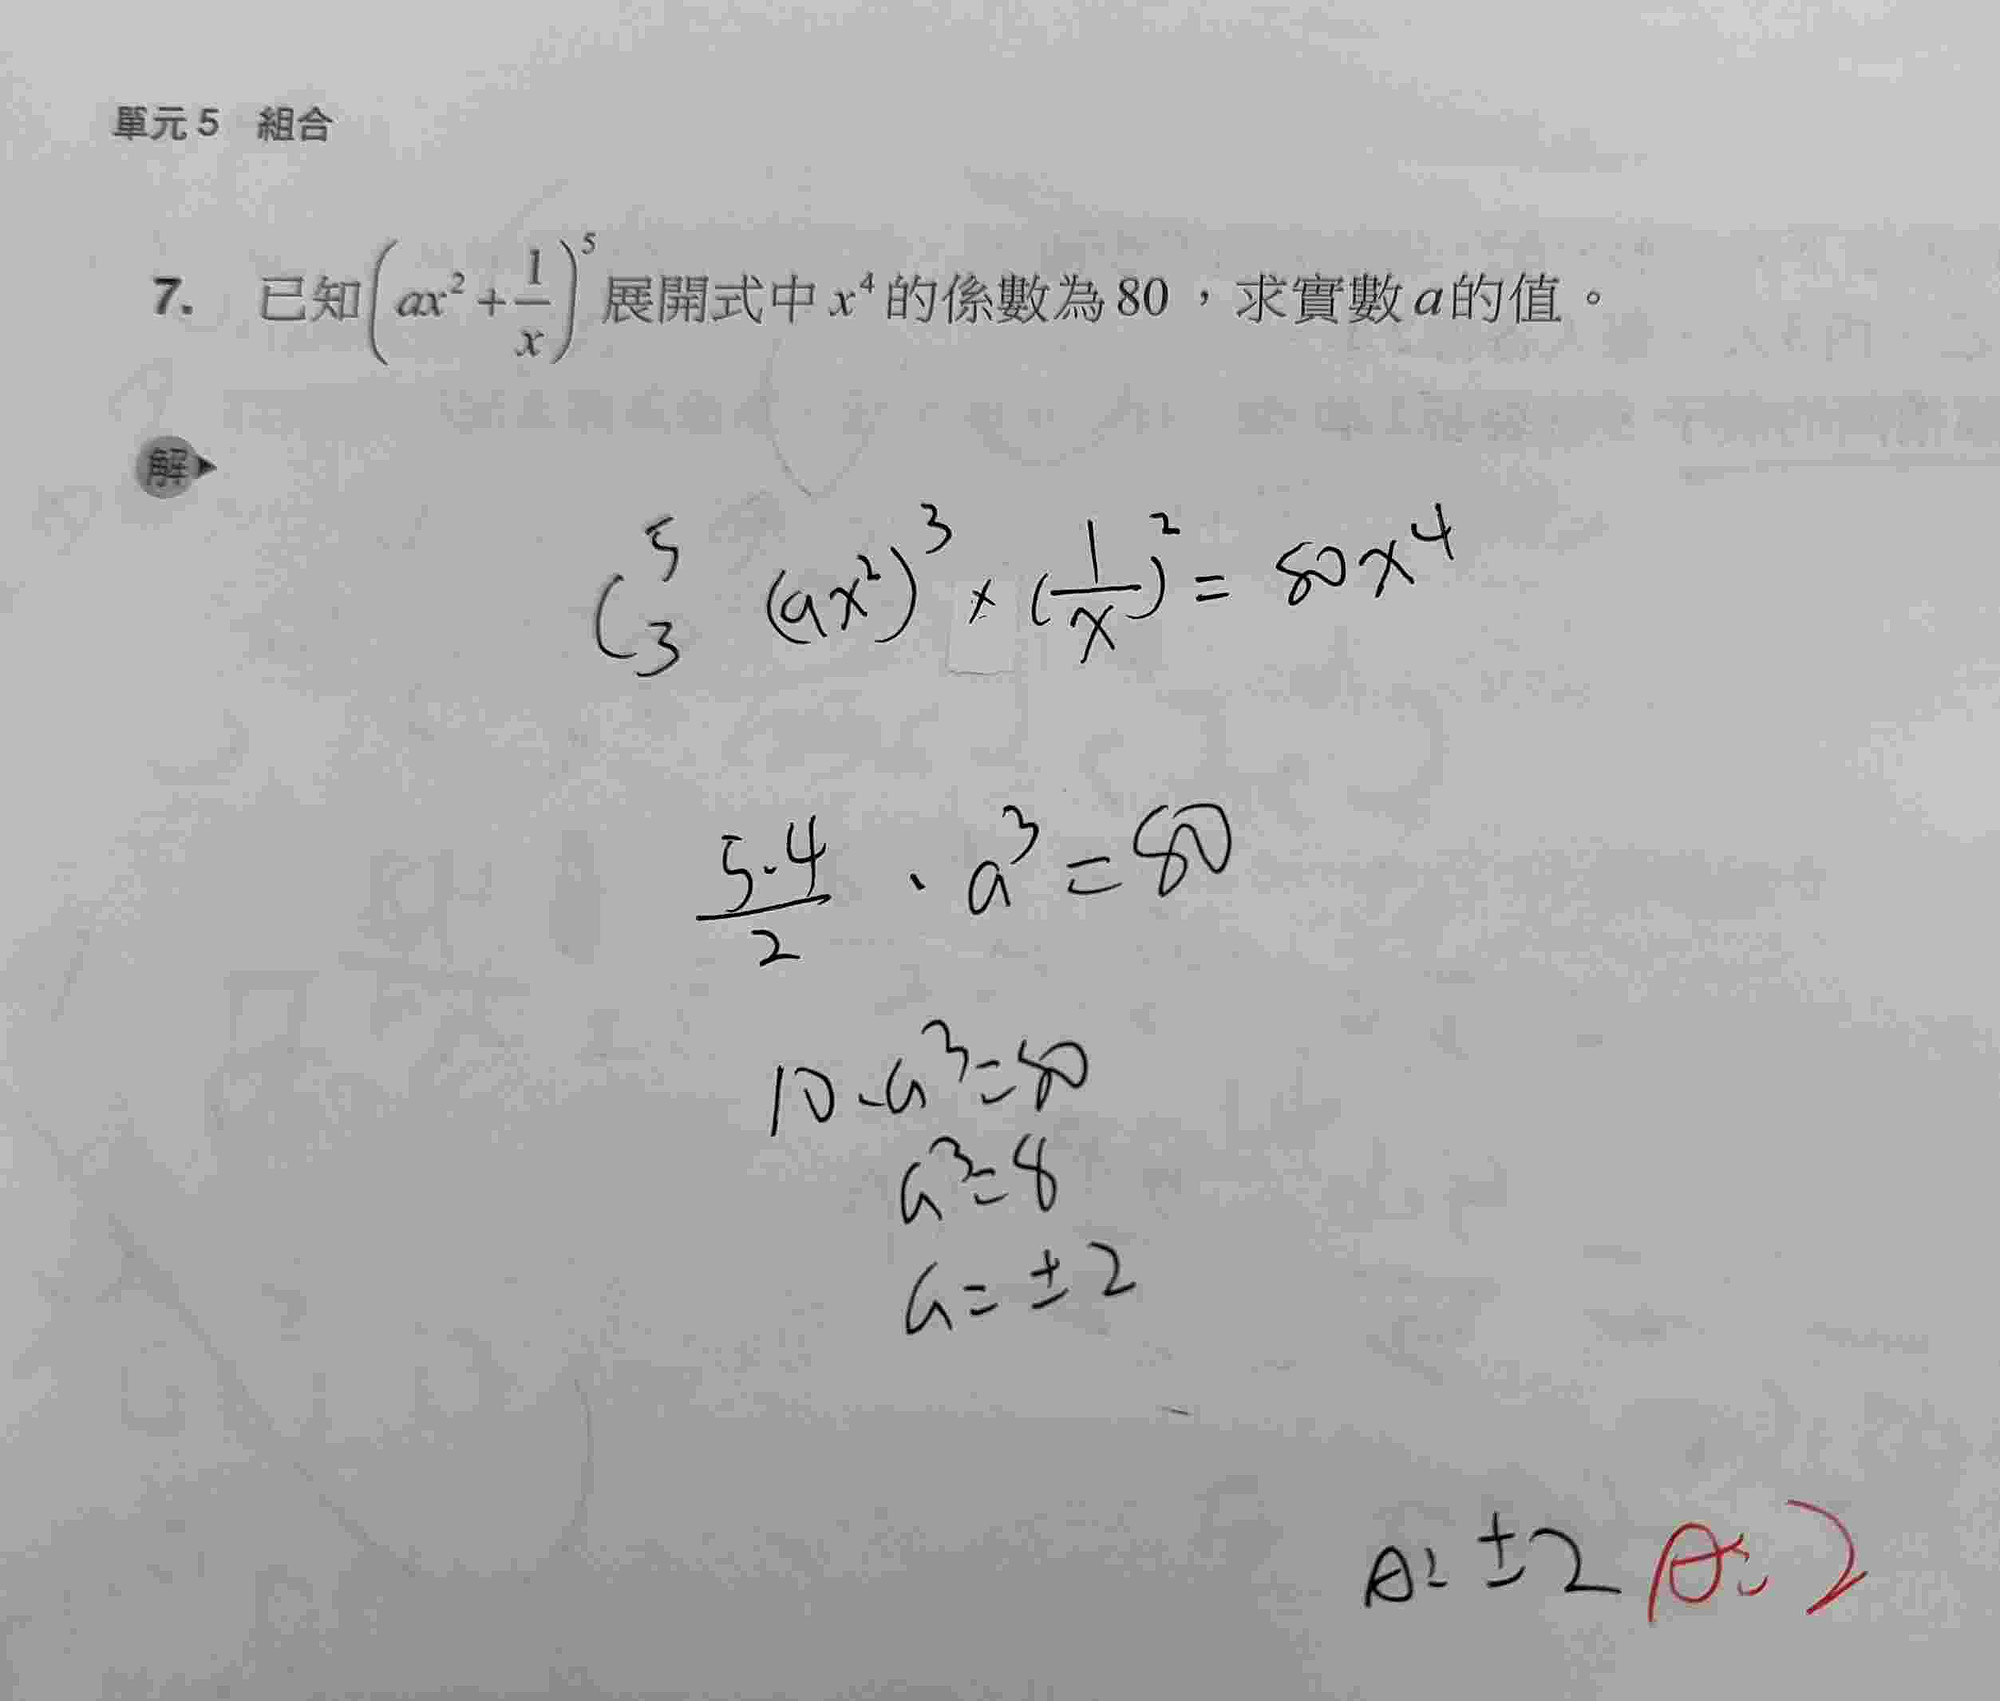 單元5 組合
7. 已知(ax²+1/x)⁵展開式中x⁴的係數為80，求實數a的值。
解
C⁵₃ (ax²)³ × (1/x)² = 80x⁴
5·4/2 · a³ = 80
10·a³=80
a³=8
a=±2
A: ±2 A: 2